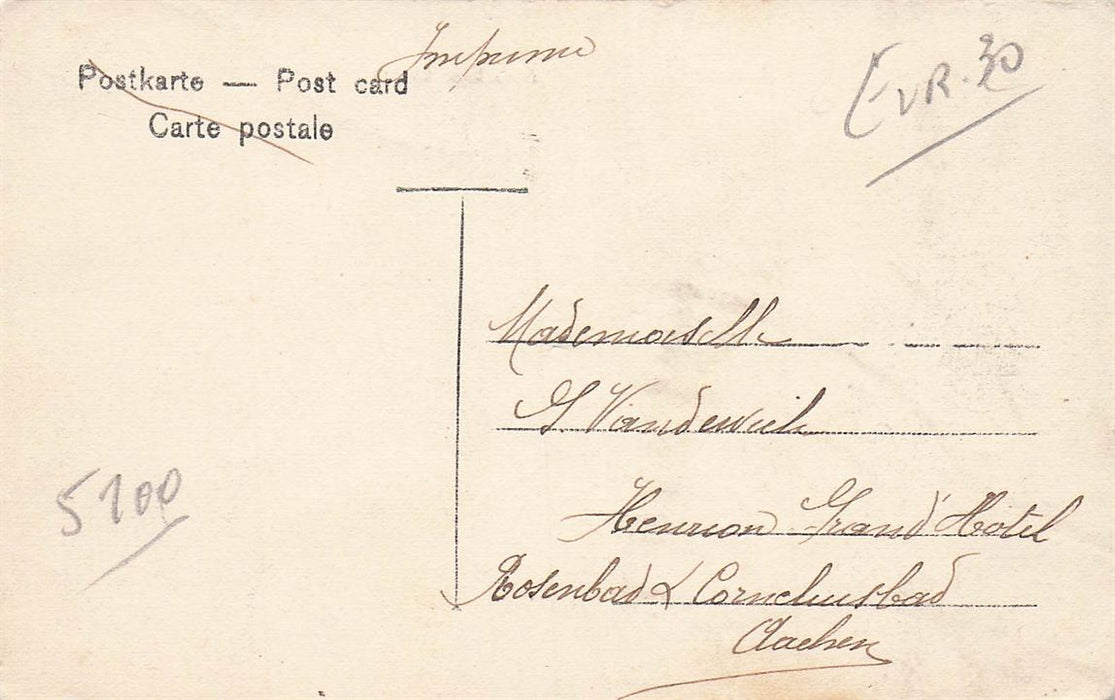 Imprimé
Postkarte — Post card
Carte postale
EVR. 30
Mademoiselle
G. Vandewiele
Henrion Grand Hotel
Rosenbad & Corneliusbad
Aachen
5100